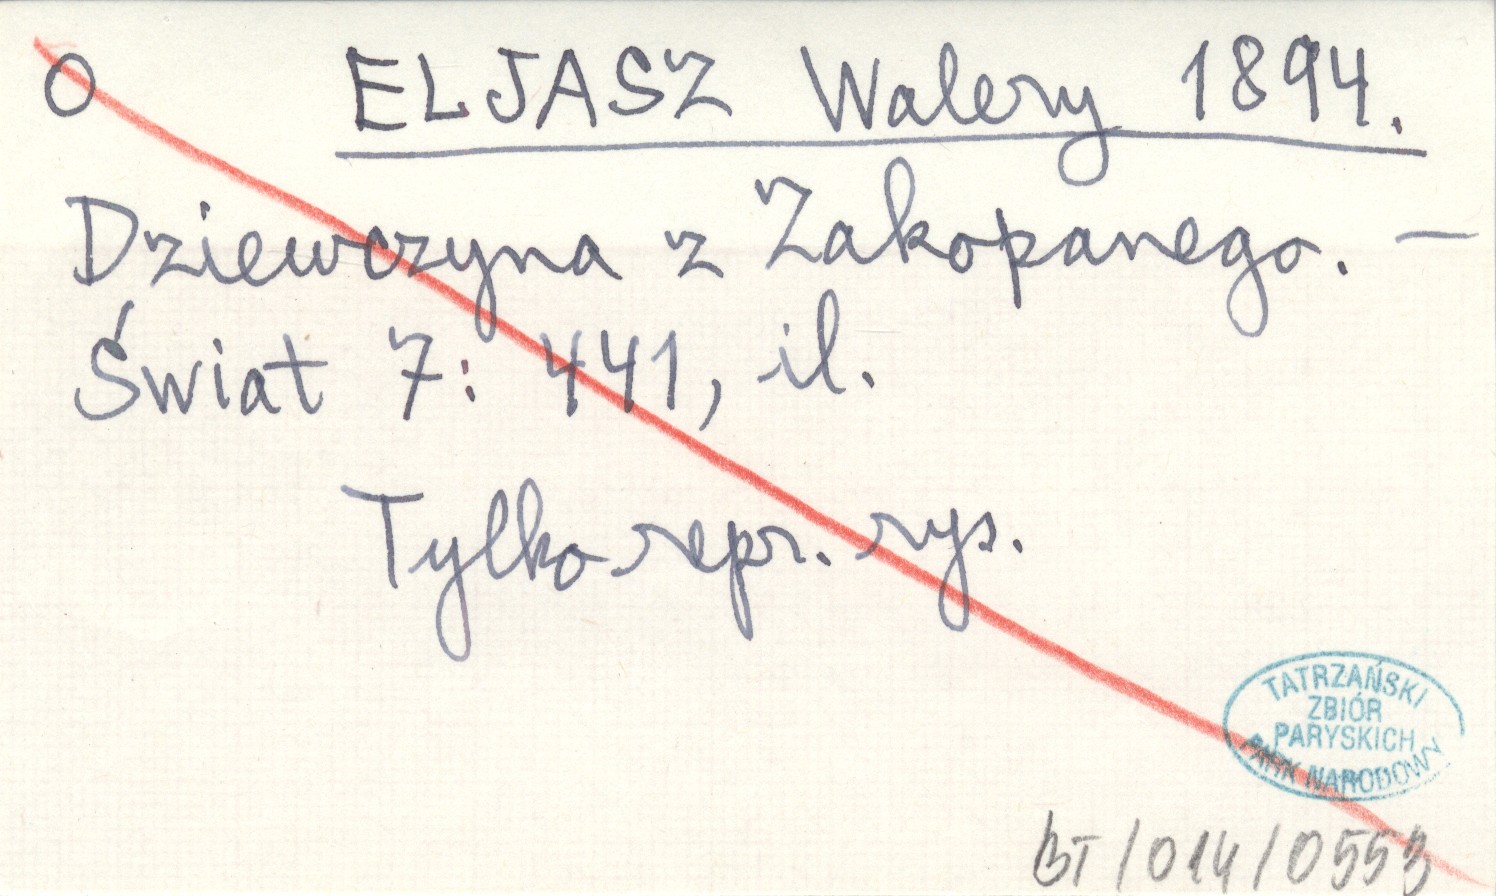 O ELJASZ Walery 1894.
Dziewczyna z Zakopanego. —
Świat 7: 441, il.
Tylko repr. rys.
TATRZAŃSKI
ZBIÓR
PARYSKICH
PARK NARODOWY
BT/014/0553